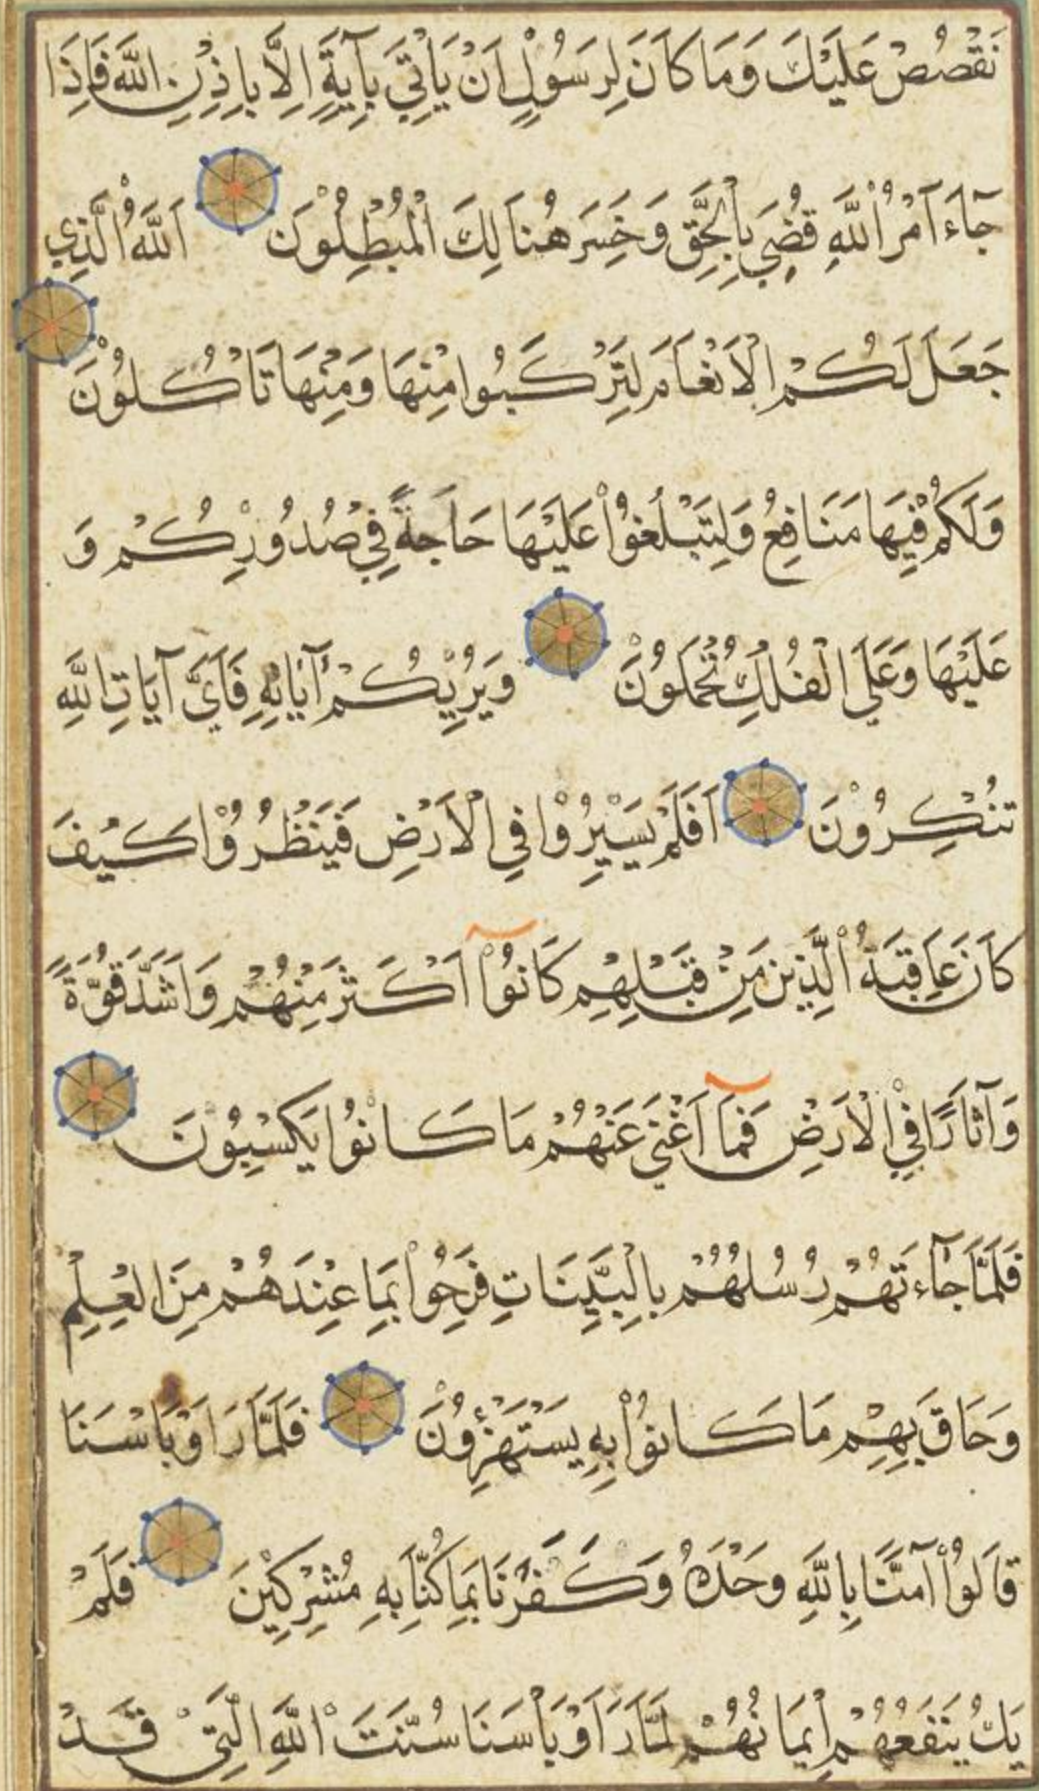 نَقْصُصْ عَلَيْكَ وَمَا كَانَ لِرَسُولٍ اَنْ يَاْتِيَ بِآيَةٍ اِلَّا بِاِذْنِ اللّٰهِ فَاِذَا
جَآءَ اَمْرُ اللّٰهِ قُضِيَ بِالْحَقِّ وَخَسِرَ هُنَالِكَ الْمُبْطِلُوْنَ اَللّٰهُ الَّذِي
جَعَلَ لَكُمْ الْاَنْعَامَ لِتَرْكَبُوا مِنْهَا وَمِنْهَا تَاْكُلُوْنَ
وَلَكُمْ فِيْهَا مَنَافِعُ وَلِتَبْلُغُوْا عَلَيْهَا حَاجَةً فِي صُدُوْرِكُمْ وَ
عَلَيْهَا وَعَلَي الْفُلْكِ تُحْمَلُوْنَ وَيُرِيْكُمْ آيَاتِهِ فَاَيَّ آيَاتِ اللّٰهِ
تُنْكِرُوْنَ اَفَلَمْ يَسِيْرُوْا فِي الْاَرْضِ فَيَنْظُرُوْا كَيْفَ
كَانَ عَاقِبَةُ الَّذِيْنَ مِنْ قَبْلِهِمْ كَانُوْا اَكْثَرَ مِنْهُمْ وَاَشَدَّ قُوَّةً
وَآثَارًا فِي الْاَرْضِ فَمَآ اَغْنَي عَنْهُمْ مَا كَانُوْا يَكْسِبُوْنَ
فَلَمَّا جَآءَتْهُمْ رُسُلُهُمْ بِالْبَيِّنَاتِ فَرِحُوْا بِمَا عِنْدَهُمْ مِنَ الْعِلْمِ
وَحَاقَ بِهِمْ مَا كَانُوْا بِهِ يَسْتَهْزِؤُنَ فَلَمَّا رَاَوْ بَاْسَنَا
قَالُوْا آمَنَّا بِاللّٰهِ وَحْدَهُ وَكَفَرْنَا بِمَا كُنَّا بِهِ مُشْرِكِيْنَ فَلَمْ
يَكُ يَنْفَعُهُمْ اِيمَانُهُمْ لَمَّا رَاَوْ بَاْسَنَا سُنَّتَ اللّٰهِ الَّتِيْ قَدْ